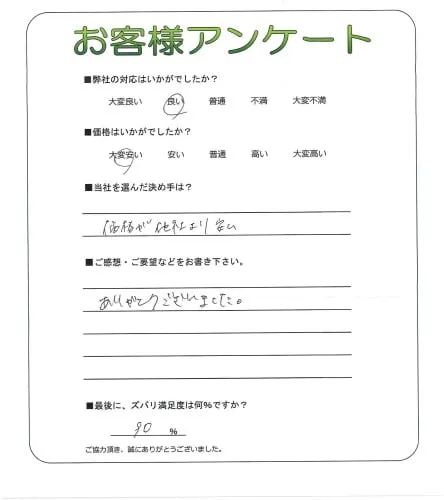 お客様アンケート
■弊社の対応はいかがでしたか?
大変良い 良い 普通 不満 大変不満
■価格はいかがでしたか?
大変安い 安い 普通 高い 大変高い
■当社を選んだ決め手は?
価格が他社より安い
■ご感想・ご要望などをお書き下さい。
ありがとうございました。
■最後に、ズバリ満足度は何%ですか?
90 %
ご協力頂き、誠にありがとうございました。